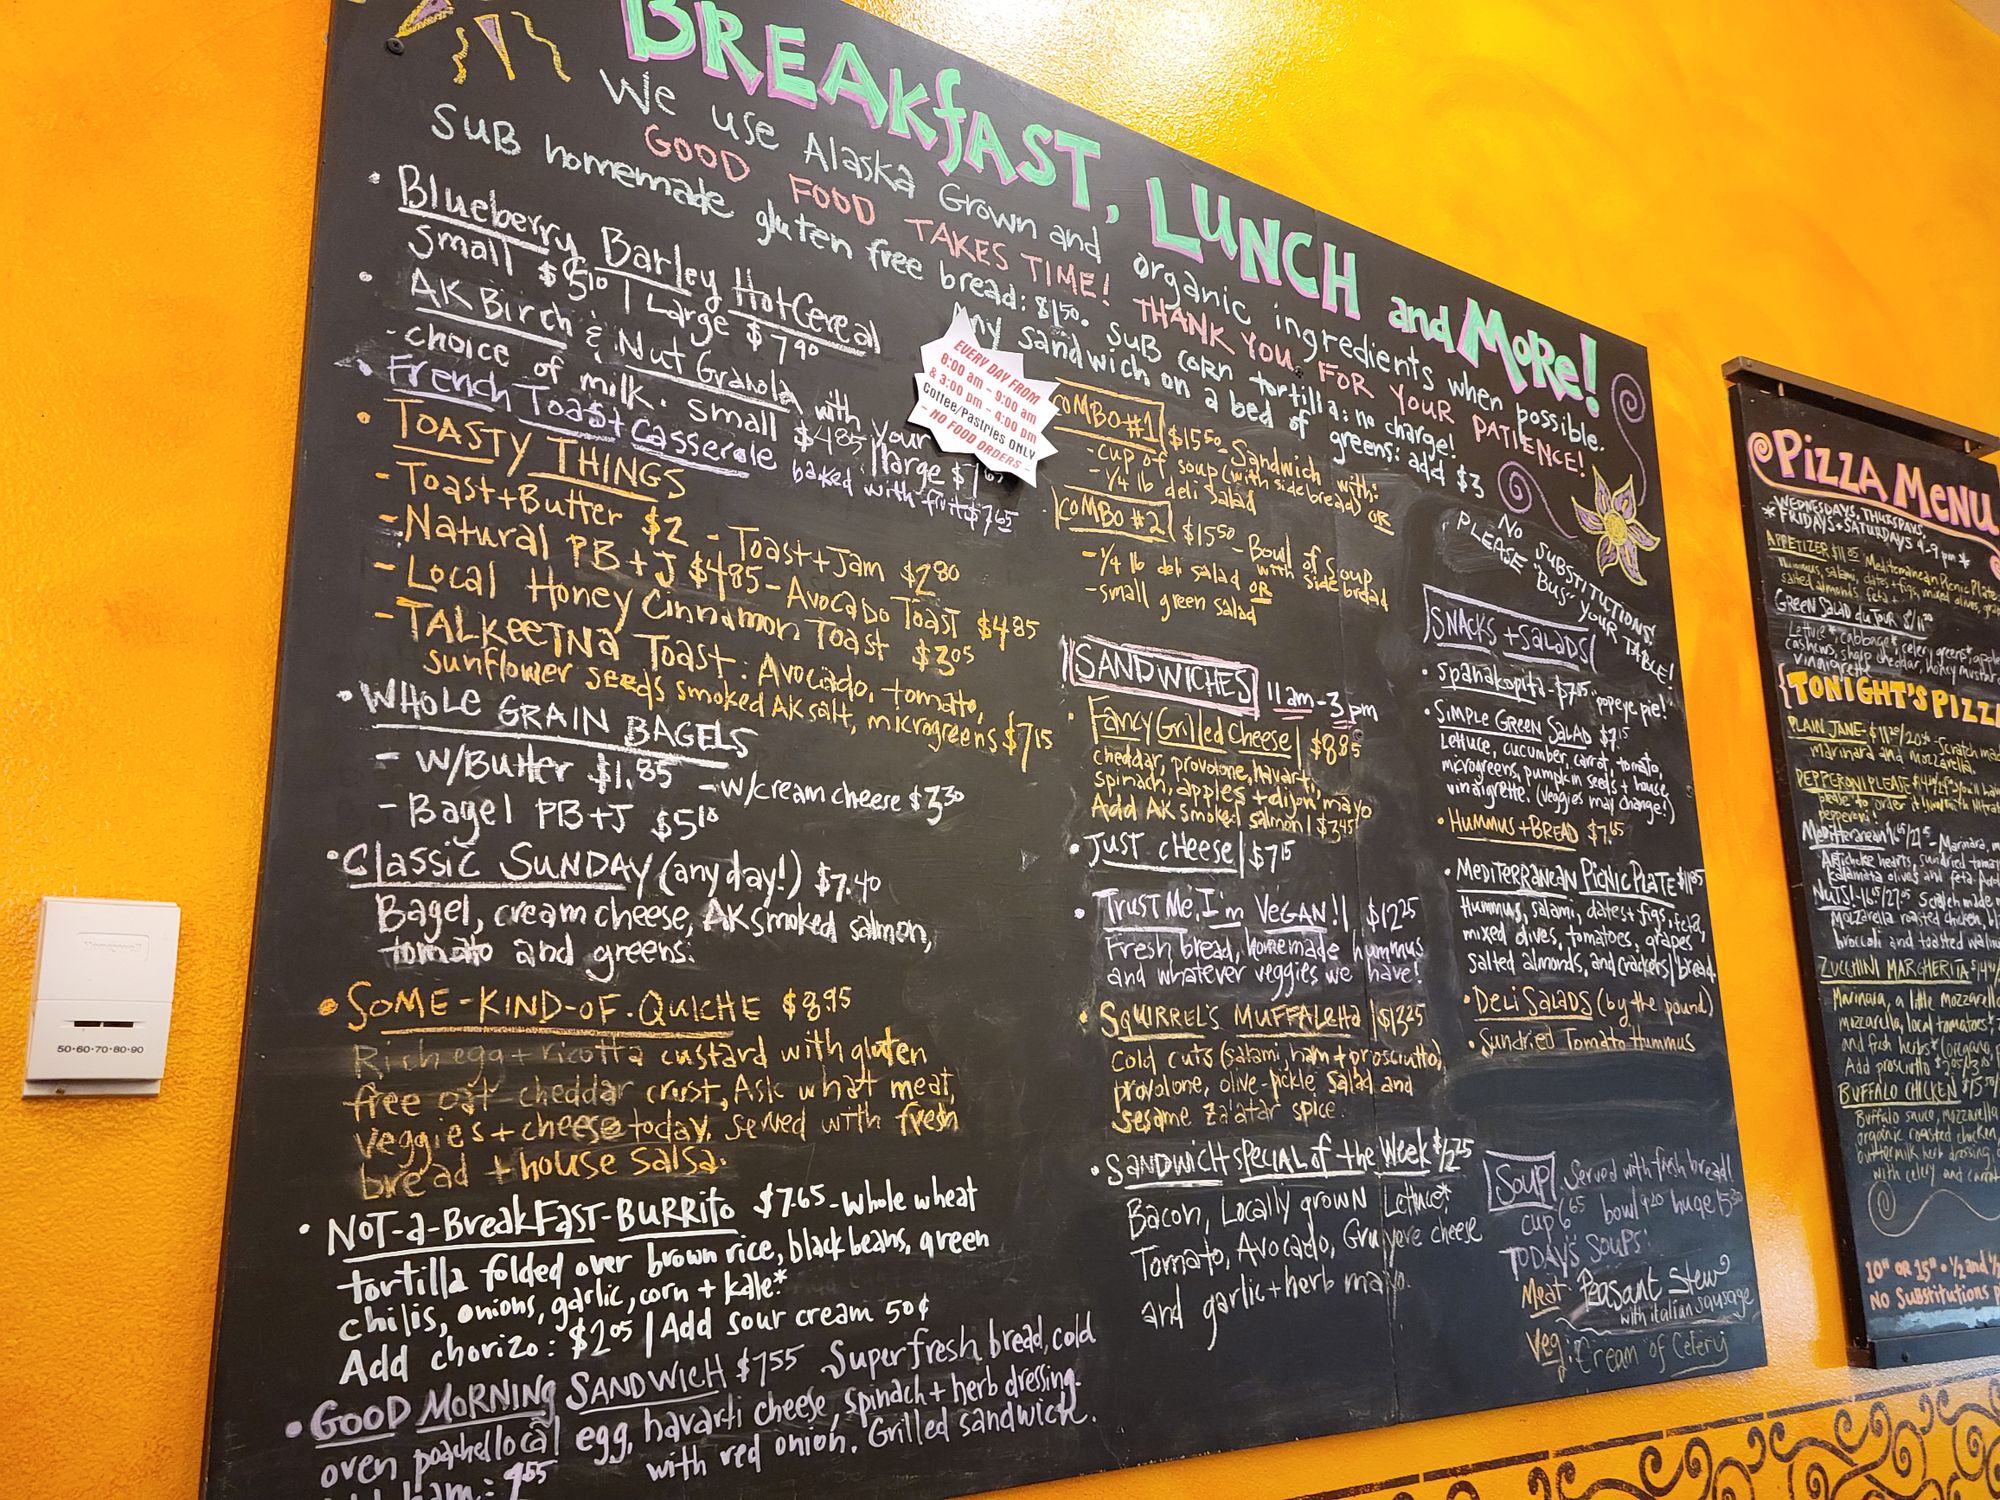 BREAKFAST, LUNCH and MORE!
We use Alaska Grown and organic ingredients when possible.
GOOD FOOD TAKES TIME! THANK YOU FOR YOUR PATIENCE!
SUB homemade gluten free bread: $1.50. SUB corn tortilla: no charge!
Any sandwich on a bed of greens: add $3
• Blueberry Barley Hot Cereal
small $5.10 | Large $7.90
• AK Birch & Nut Granola with your
- choice of milk. small $4.85 | large
• French Toast Casserole baked with fruit $7.65
EVERY DAY FROM
8:00 am - 9:00 am
& 3:00 pm - 4:00 pm
Coffee/Pastries ONLY
- NO FOOD ORDERS -
• TOASTY THINGS
- Toast + Butter $2 - Toast + Jam $2.80
- Natural PB + J $4.85 - Avocado Toast $4.85
- Local Honey Cinnamon Toast $3.05
- TALKEETNA Toast: Avocado, tomato,
sunflower seeds smoked AK salt, microgreens $7.15
• WHOLE GRAIN BAGELS
- w/Butter $1.85 - w/cream cheese $3.30
- Bagel PB+J $5.10
• Classic SUNDAY (any day!) $7.40
Bagel, cream cheese, AK smoked salmon,
tomato and greens.
• SOME-KIND-OF-QUICHE $8.95
Rich egg + ricotta custard with gluten
free oat cheddar crust, Ask what meat,
veggies + cheese today. Served with fresh
bread + house salsa.
• NOT-a-BreakFast-BURRITO $7.65 - Whole wheat
tortilla folded over brown rice, black beans, green
chilis, onions, garlic, corn + kale*
Add chorizo: $2.05 | Add sour cream 50¢
• GOOD MORNING SANDWICH $7.55 Super fresh bread, cold
oven poached local egg, havarti cheese, spinach + herb dressing.
with red onion. Grilled sandwich.
ham: 9.55
COMBO #1 $15.50 - Sandwich with:
- cup of soup (with side bread) OR
- 1/4 lb deli salad
COMBO #2 $15.50 - Bowl of soup
with side bread
- 1/4 lb deli salad OR
- small green salad
SANDWICHES 11am-3pm
• Fancy Grilled Cheese | $8.85
cheddar, provolone, havarti,
spinach, apples + dijon mayo
Add AK smoked salmon | $3.45
• JUST cHEESE | $7.15
• TRUST Me, I'm VEGAN! | $12.25
Fresh bread, homemade hummus
and whatever veggies we have!
• SQUIRREL'S MUFFALEtta | $13.25
Cold cuts (salami, ham + prosciutto),
provolone, olive-pickle salad and
sesame za'atar spice.
• SANDWiCH SPECIAL of the Week $12.25
Bacon, Locally grown Lettuce*
Tomato, Avocado, Gruyere cheese
and garlic + herb mayo.
NO SUBSTITUTIONS!
PLEASE "BUS" YOUR TABLE!
SNACKS + SALADS
• Spanakopita - $7.05 "popeye pie!"
• SIMPLE GREEN SALAD $7.15
Lettuce, cucumber, carrot, tomato,
microgreens, pumpkin seeds + house
vinaigrette. (veggies may change!)
• HUMMUS + BREAD $7.65
• MEDITERRANEAN PICNIC PLATE $11.85
Hummus, salami, dates + figs, feta,
mixed olives, tomatoes, grapes
salted almonds, and crackers/bread.
• DELI SALADS (by the pound)
• Sundried Tomato Hummus
SOUP Served with fresh bread!
cup 6.65 bowl 9.20 huge 15.30
TODAY'S SOUPS:
Meat: Peasant Stew
with italian sausage
Veg: Cream of Celery
Honeywell
50·60·70·80·90
PIZZA MENU
* WEDNESDAYS, THURSDAYS,
FRIDAYS + SATURDAYS 4-9 pm *
APPETIZER $11.85 Mediterranean Picnic Plate
hummus, salami, dates + figs, mixed olives,
salted almonds, feta +
GREEN SALAD du JOUR
Lettuce*, cabbage*, celery, greens*,
cashews, sharp cheddar, honey mustard
vinaigrette
TONIGHT'S PIZZA
PLAIN JANE - Scratch made
marinara and mozzarella.
PEPPERONI PLEASE
pepperoni
Mediterranean - Marinara,
Artichoke hearts, sundried
kalamata olives and feta
NUTS! Scratch made
mozzarella roasted chicken,
broccoli and toasted
ZUCCHINI MARGHERITA
Marinara, a little mozzarella
mozzarella, local tomatoes*
and fresh herbs* (oregano,
Add prosciutto
BUFFALO CHICKEN
Buffalo sauce, mozzarella
organic roasted chicken,
buttermilk herb dressing,
with celery and carrot
10" OR 15" • 1/2 and 1/2
NO Substitutions